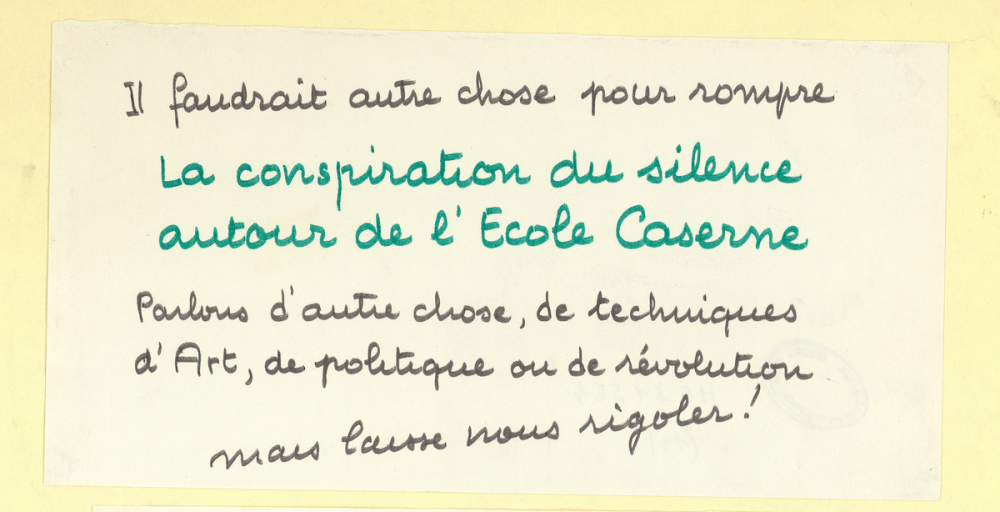 Il faudrait autre chose pour rompre
La conspiration du silence
autour de l'Ecole Caserne
Parlons d'autre chose, de techniques
d'Art, de politique ou de révolution
mais laisse nous rigoler !